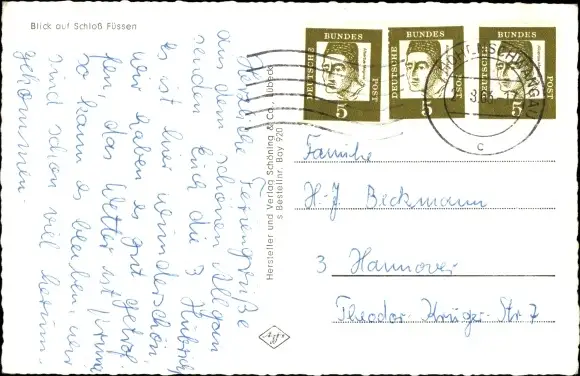 Blick auf Schloß Füssen
Herzliche Feriengrüße
aus dem schönen Allgäu
senden Euch die 3 Hübsch
es ist hier wunderschön,
wir haben es gut getrof-
fen, das Wetter ist prima
so kann es bleiben, wir
sind schon viel herum-
gekommen.
Hersteller und Verlag Schöning & Co., Lübeck
s Bestellnr. Bay 920
DEUTSCHE BUNDES POST
5
DEUTSCHE BUNDES POST
5
DEUTSCHE BUNDES POST
5
SCHWANGAU
c
Familie
H-J Beckmann
3 Hannover
Theodor-Krüger-Str 7